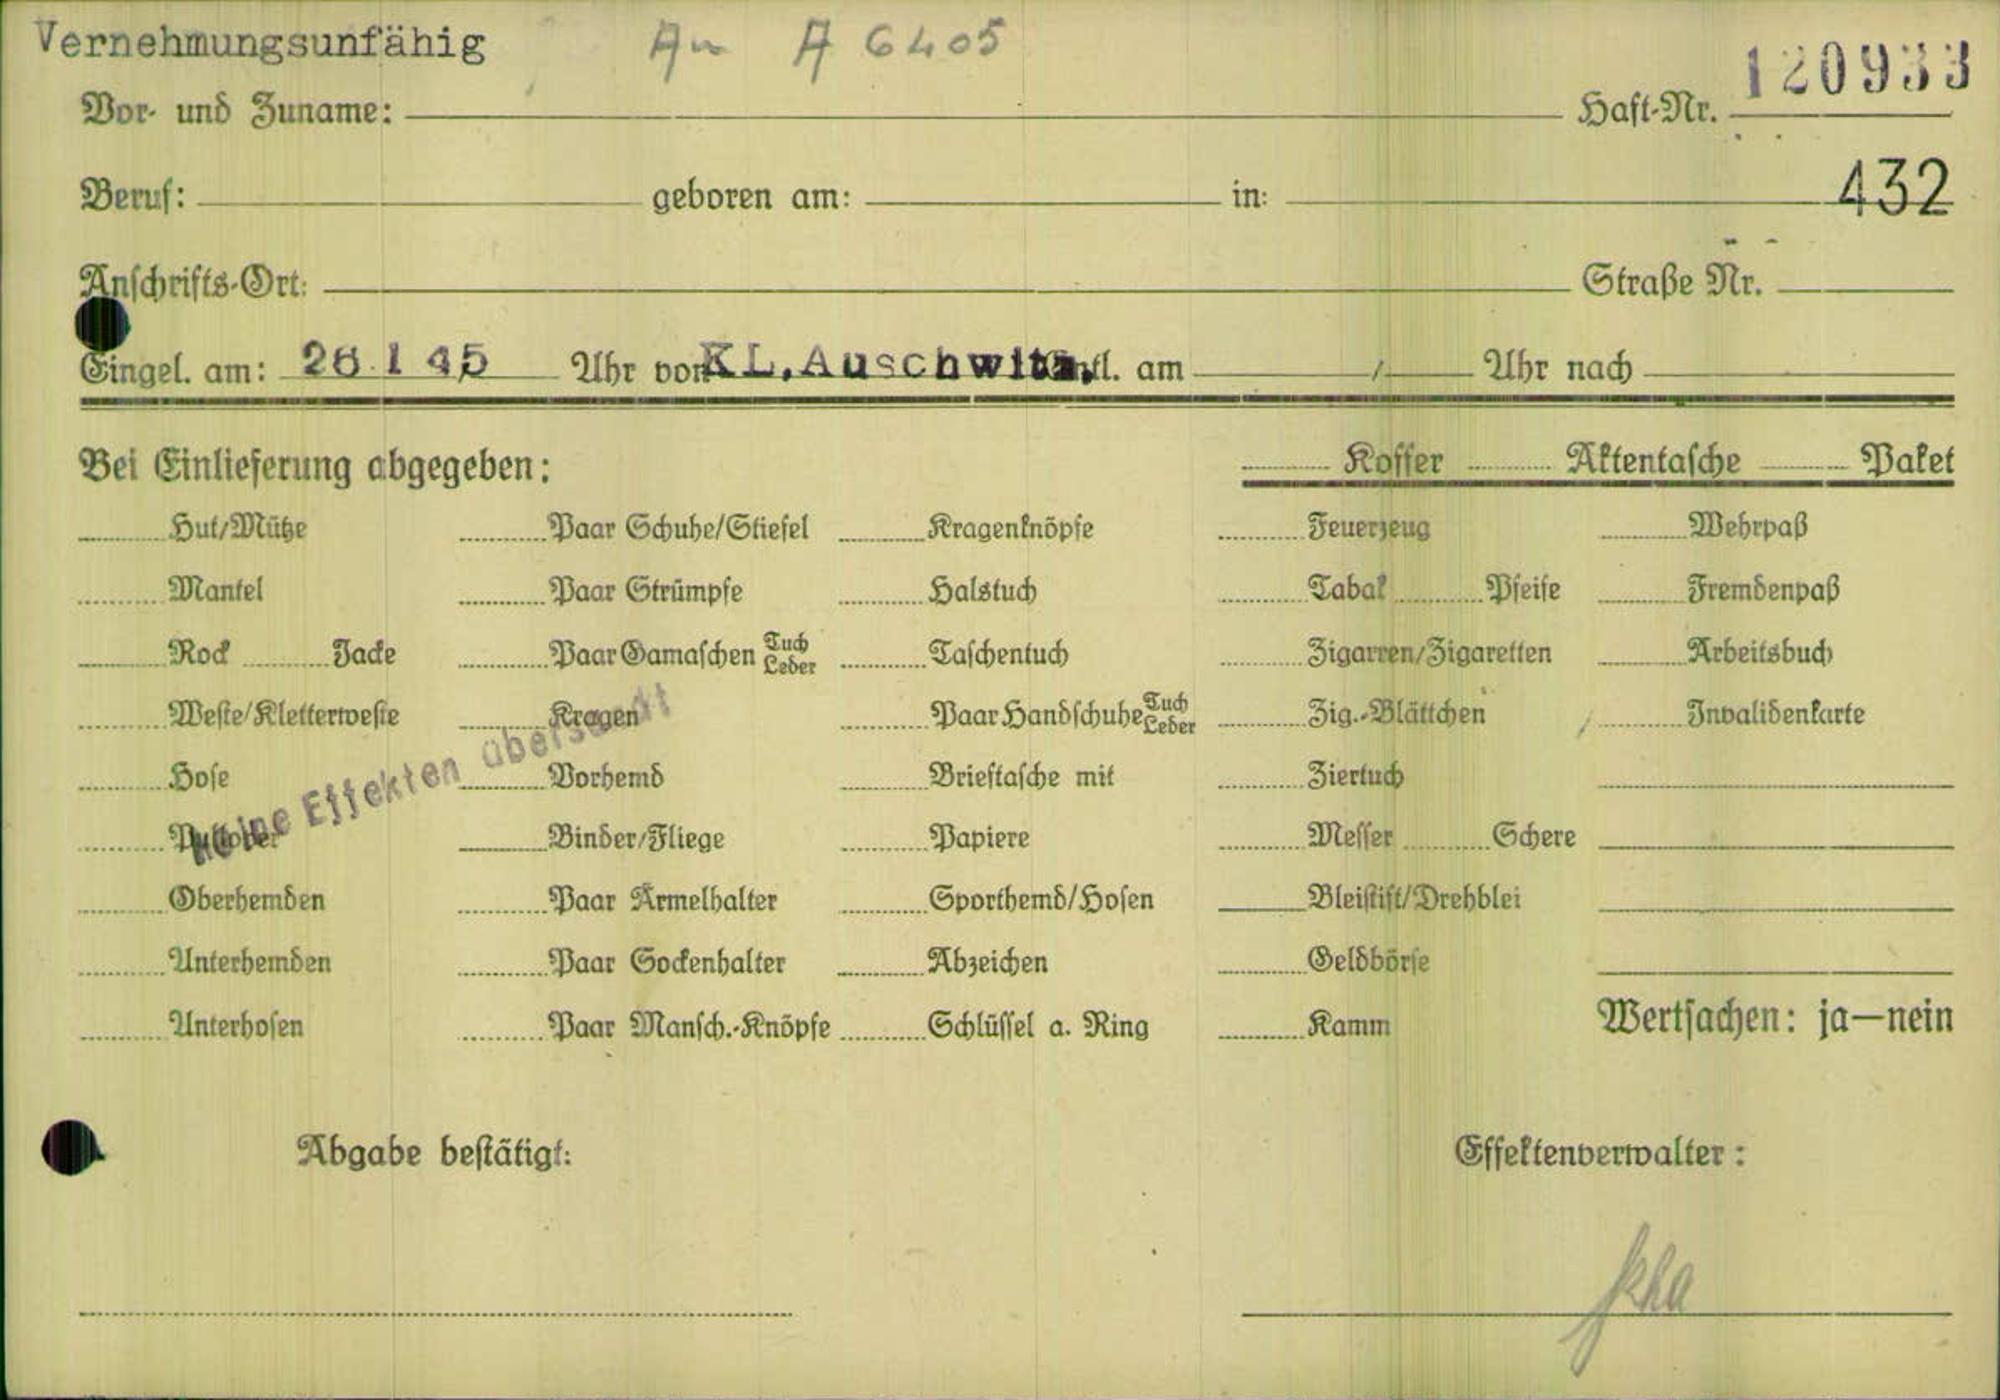 Vernehmungsunfähig A 6405
120933
Vor- und Zuname: Haft-Nr.
Beruf: geboren am: in: 432
Anschrifts-Ort: Straße Nr.
Eingel. am: 26 1 45 Uhr von KL. Auschwitz, Entl. am Uhr nach
Bei Einlieferung abgegeben: Koffer Aktentasche Paket
Hut/Mütze Paar Schuhe/Stiefel Kragenknöpfe Feuerzeug Wehrpaß
Mantel Paar Strümpfe Halstuch Tabak Pfeife Fremdenpaß
Rock Jacke Paar Gamaschen Tuch Leder Taschentuch Zigarren/Zigaretten Arbeitsbuch
Weste/Kletterweste Kragen Paar Handschuhe Tuch Leder Zig.-Blättchen Invalidenkarte
Hose Vorhemd Brieftasche mit Ziertuch
Pullover Binder/Fliege Papiere Messer Schere
Keine Effekten übersandt
Oberhemden Paar Ärmelhalter Sporthemd/Hosen Bleistift/Drehblei
Unterhemden Paar Sockenhalter Abzeichen Geldbörse
Unterhosen Paar Mansch.-Knöpfe Schlüssel a. Ring Kamm Wertsachen: ja—nein
Abgabe bestätigt: Effektenverwalter: